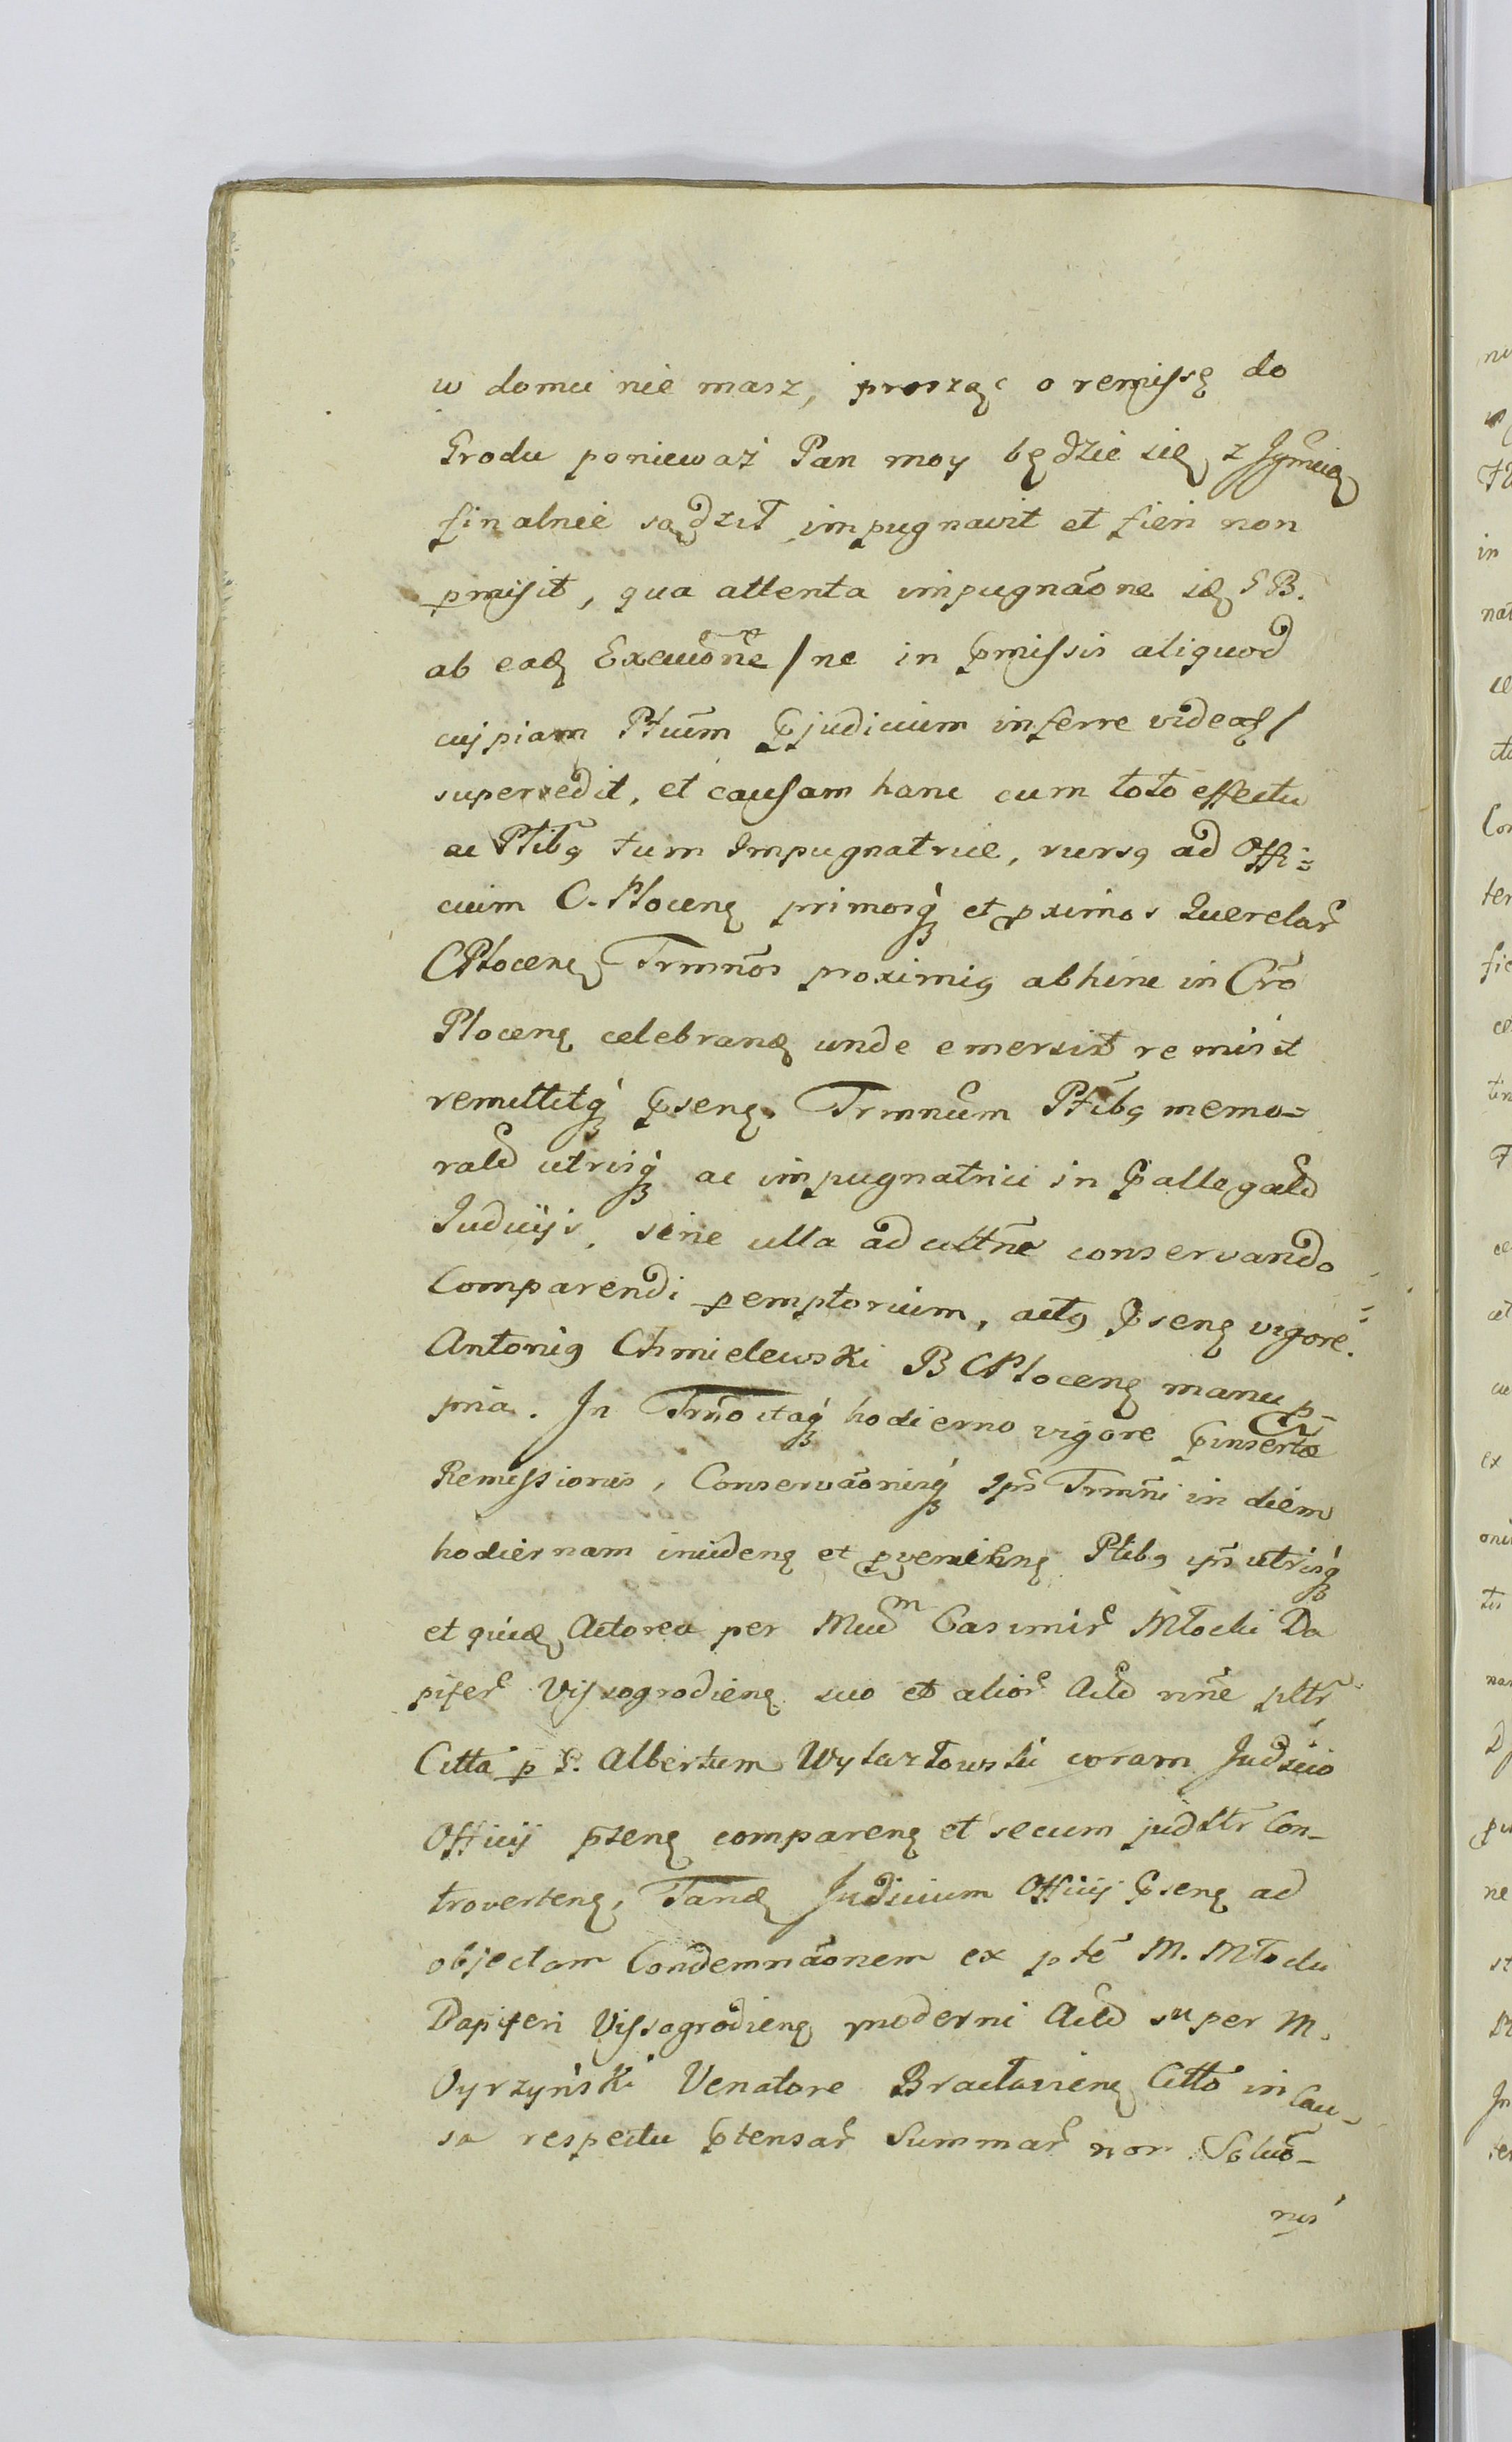 w domu nie masz, prosząc o remissę do
Grodu ponieważ Pan moy będzie się z Jgmcią
finalnie sądził impugnavit et fieri non
pmisit, qua attenta impugnaõne idę GB.
ab eadę Execuõne /ne in pmissis aliquod
cujpiam Ptium pjudicium inferre videatʒ/
supersedit, et causam hanc cum toto effectu
ac Ptibꝫ tum Impugnatrice, rursꝫ ad Offi=
cium C. Plocenę primosqꝫ et pximos Querelar̃
CPlocenę Trmños proximiꝫ abhinc in Cro
Plocenę celebrandę unde emersit remisit
remittitqꝫ psenę. Trmnum Ptibꝫ memo=
rald utrisqꝫ ac impugnatrici in pallegatd
Judicijs, sine ulla ad cittne conservando
Comparendi pemptorium, actꝫ psenę vigore.
Antoniꝫ Chmielewski B CPlocenę manu p-
pria. In Trño itaqꝫ hodierno vigore pinsertæ
Remissionis, Conservaõnisqꝫ ips Trmñi in diem
hodiernam incidenę et pvenienę Ptibꝫ ips utrisqꝫ
et quidę Actorea per Mcum Casimir̃ Młocki Da
pifer̃ Vissogrodienę suo et alior̃ Actd nñe pltr̃
Citta p G. Albertum Wylazłowski coram Judicio
Officij psenę comparenę et secum judltr Con-
trovertenę, Tandę Judicium Officij psenę ad
objectam Condemnaõnem ex pte M. Młocki
Dapiferi Vissogrodienę moderni Actd super M.
Oyrzyński Venatore Bractavienę Citto in Cau-
sa respectu ptensar̃ Summar̃ non Soluõ-
nis